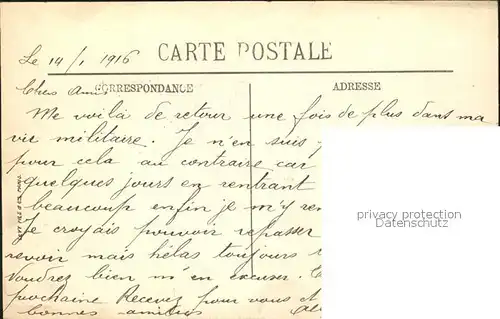 Le 14/1 1916
CARTE POSTALE
CORRESPONDANCE
ADRESSE
Chers Amis
Me voilà de retour une fois de plus dans ma
vie militaire. Je n'en suis
pour cela au contraire car
quelques jours en rentrant
beaucoup enfin je m'y
Je croyais pouvoir repasser
revoir mais hélas toujours
Voudrez bien m'en excuser.
prochaine Recevez pour vous et
bonnes amitiés
privacy protection
(watermark)